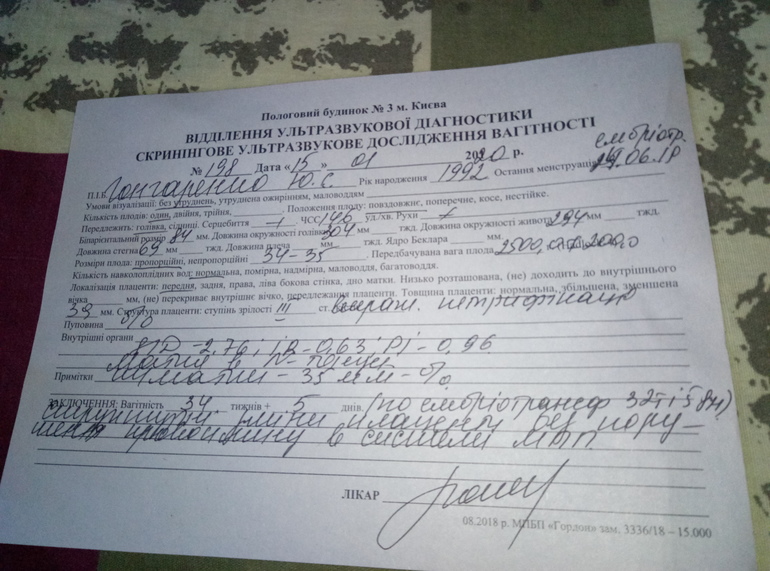 Пологовий будинок № 3 м. Києва
ВІДДІЛЕННЯ УЛЬТРАЗВУКОВОЇ ДІАГНОСТИКИ
СКРИНІНГОВЕ УЛЬТРАЗВУКОВЕ ДОСЛІДЖЕННЯ ВАГІТНОСТІ
№ 198 Дата «15» 01 2020 р.
П.І.Б. Гончаренко Ю.С. Рік народження 1992 Остання менструація 06.19
Умови візуалізації: без утруднень, утруднена ожирінням, маловоддям
Кількість плодів: один, двійня, трійня, Положення плоду: повздовжнє, поперечне, косе, нестійке.
Передлежить: голівка, сідниці. Серцебиття + ЧСС 146 уд./хв. Рухи +
Біпарієтальний розмір 84 мм. Довжина окружності голівки 304 мм тжд. Довжина окружності живота 294 мм тжд.
Довжина стегна 69 мм тжд. Довжина плеча мм тжд. Ядро Беклара мм
Розміри плода: пропорційні, непропорційні 34-35 Передбачувана вага плода 2500,0 ± 200,0
Кількість навколоплідних вод: нормальна, помірна, надмірна, маловоддя, багатоводдя.
Локалізація плаценти: передня, задня, права, ліва бокова стінка, дно матки. Низько розташована, (не) доходить до внутрішнього
вічка мм, (не) перекриває внутрішнє вічко, передлежання плаценти. Товщина плаценти: нормальна, збільшена, зменшена
39 мм. Структура плаценти: ступінь зрілості III ст.
Пуповина
Внутрішні органи
2,76; 0,63; PI - 0,96
Примітки - 35 мм - %
ЗАКЛЮЧЕННЯ: Вагітність 34 тижнів + 5 днів. (по ембріотрансф 32т і 5 дн)
плаценти без пору-
шення кровоплину в системі МПП.
ЛІКАР
08.2018 р. МПБП «Гордон» зам. 3336/18 – 15.000